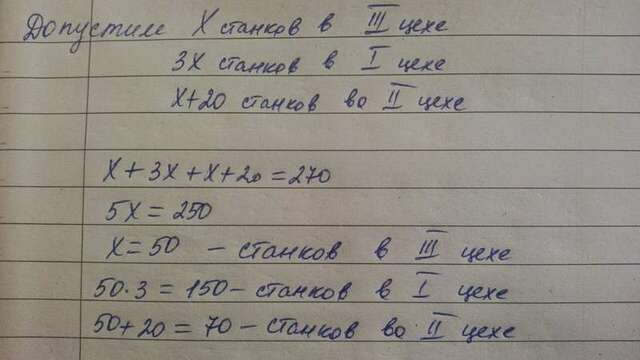 Допустим X станков в III цехе
3X станков в I цехе
X+20 станков во II цехе
X+3X+X+20=270
5X=250
X=50 – станков в III цехе
50·3=150– станков в I цехе
50+20=70– станков во II цехе